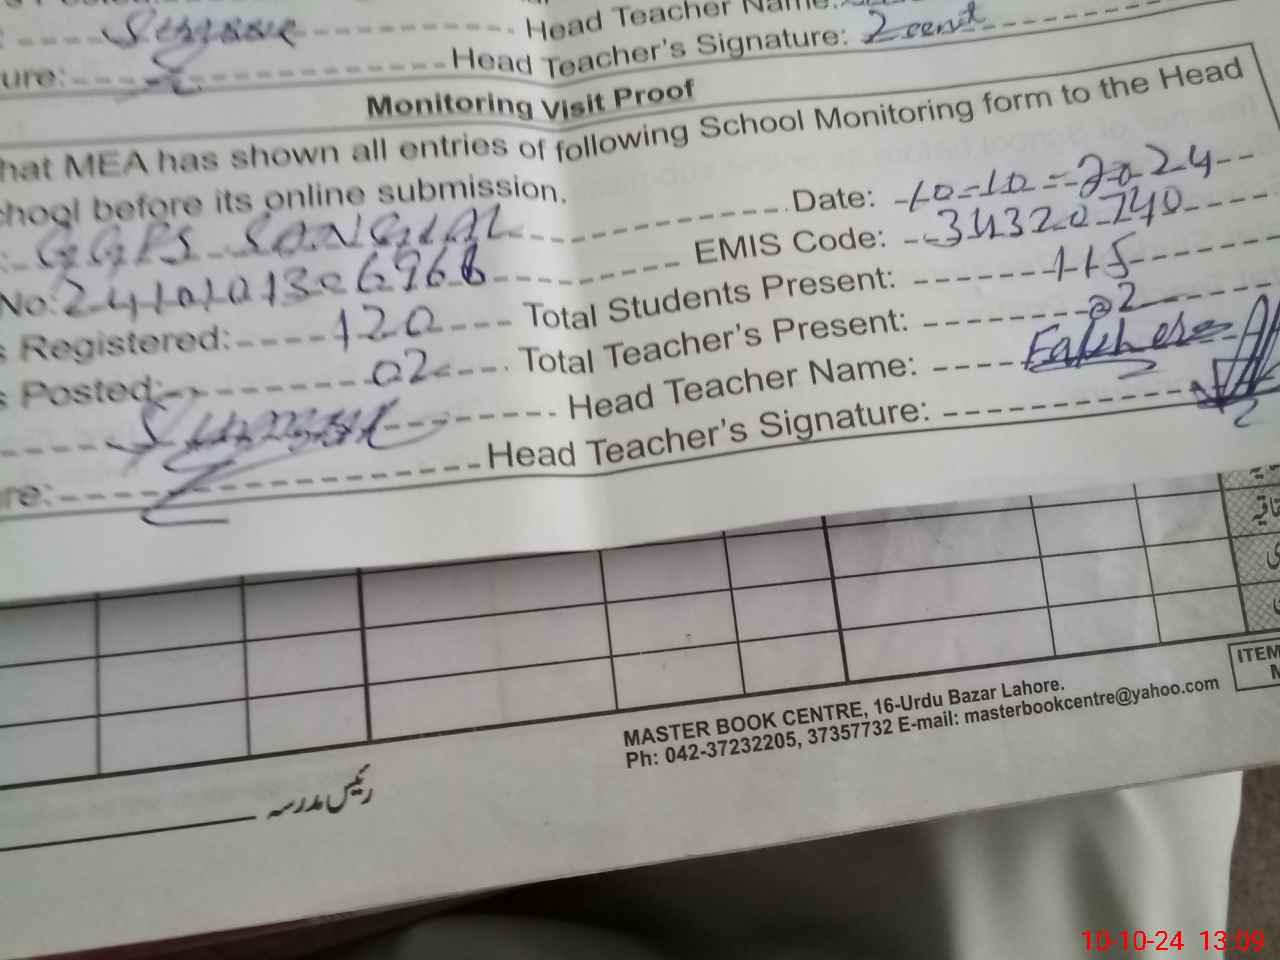 Head Teacher Name:
ure: Head Teacher's Signature: Zeenat
Monitoring Visit Proof
hat MEA has shown all entries of following School Monitoring form to the Head
chool before its online submission.
Date: 10-10-2024
GGPS SANGIAL EMIS Code: 34320740
No: 2410101306968 Total Students Present: 115
s Registered: 120 Total Teacher's Present: 02
s Posted: 02 Head Teacher Name:
Head Teacher's Signature:
re:
MASTER BOOK CENTRE, 16-Urdu Bazar Lahore.
Ph: 042-37232205, 37357732 E-mail: masterbookcentre@yahoo.com
ITEM
رئیس مدرسہ
10-10-24 13:09